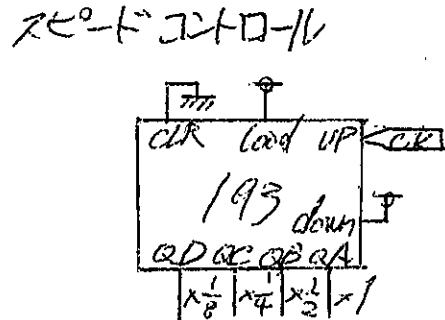 スピードコントロール
CLR load UP CK
193
down
QD QC QB QA
×1/8 ×1/4 ×1/2 ×1